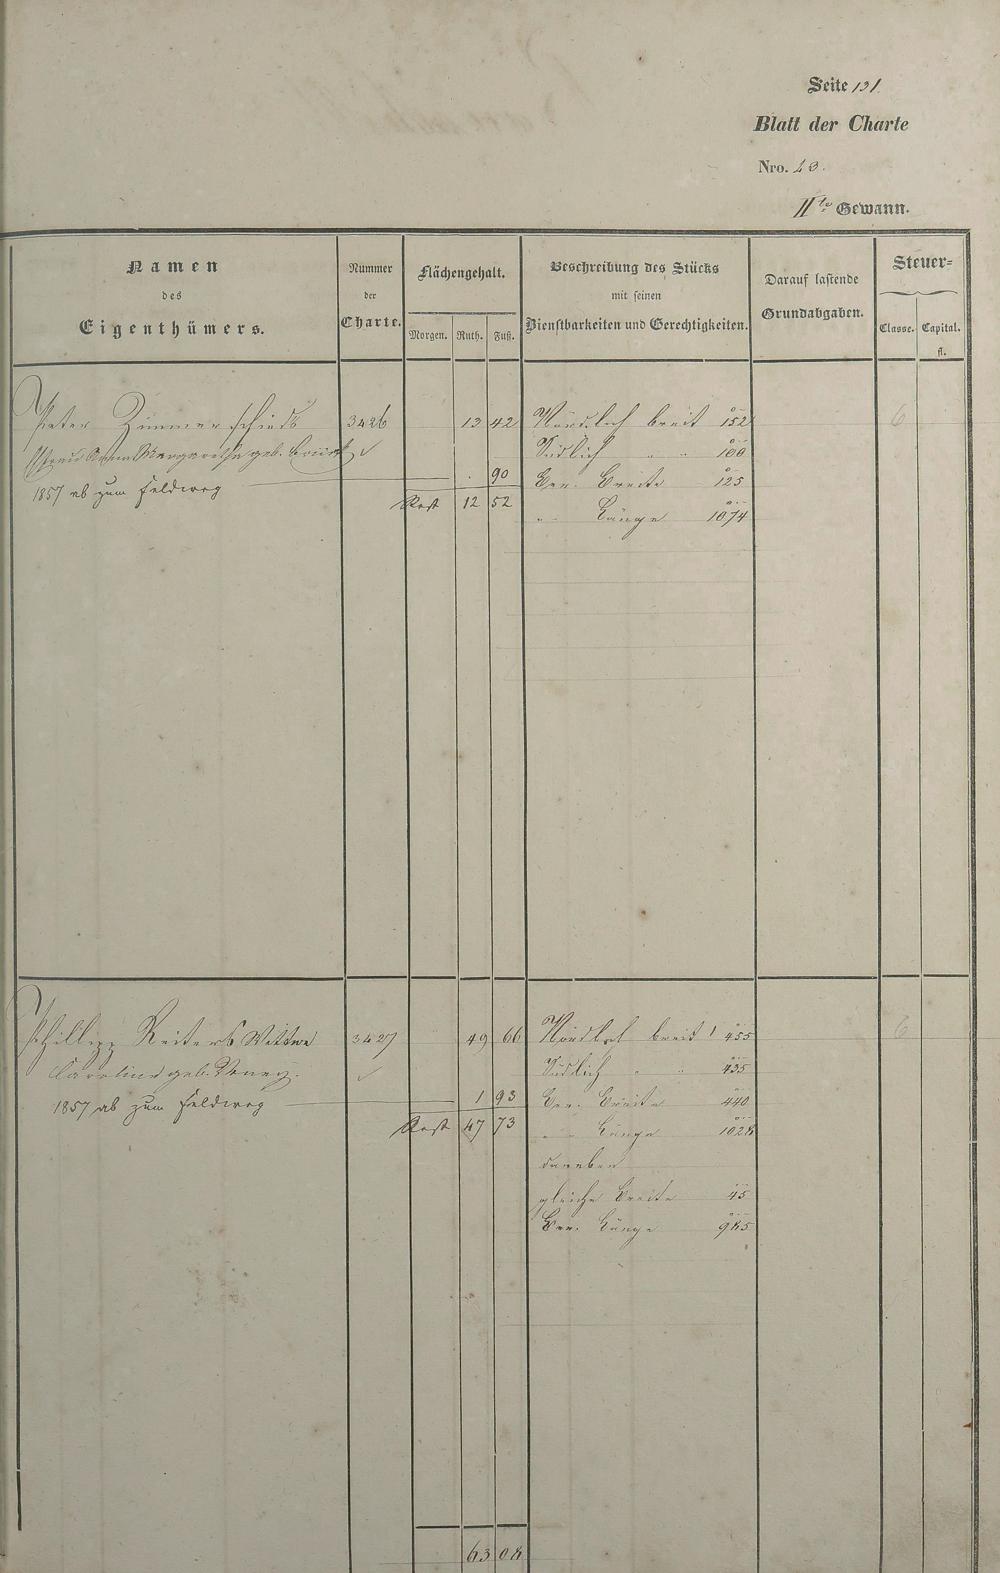 Seite 131
Blatt der Charte
Nro. 23.
IIte Gewann.
Namen des Eigenthümers.
Nummer der Charte.
Flächengehalt.
Morgen. Ruth. Fuß.
Beschreibung des Stücks mit seinen Dienstbarkeiten und Gerechtigkeiten.
Darauf lastende Grundabgaben.
Steuer=
Classe. Capital. fl.
Peter Zimmerschieds 3426 13 42 Nördlich breit 152 6
Frau Anna Margaretha geb. Südlich " " 100
90 Ber. Breite 125
1857 ab zum Feldweg
Rest 12 52 " Länge 1074
Phillipp Reiters Wittwe 3427 49 66 Nördlich breit 455 6
Caroline geb. Südlich " " 435
1857 ab zum Feldweg 1 93 Ber. Breite 440
Rest 47 73 " Länge 1028
daneben
gleiche Breite 45
Ber. Länge 985
63 08